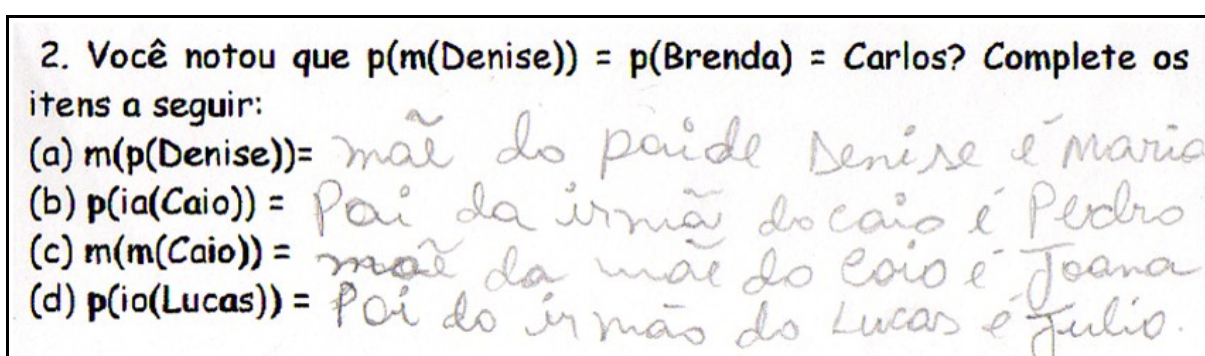 2. Você notou que p(m(Denise)) = p(Brenda) = Carlos? Complete os
itens a seguir:
(a) m(p(Denise))= mãe do pai de Denise é Maria
(b) p(ia(Caio)) = Pai da irmã do caio é Pedro
(c) m(m(Caio)) = mãe da mãe do Caio é Joana
(d) p(io(Lucas)) = Pai do irmão do Lucas é Julio.